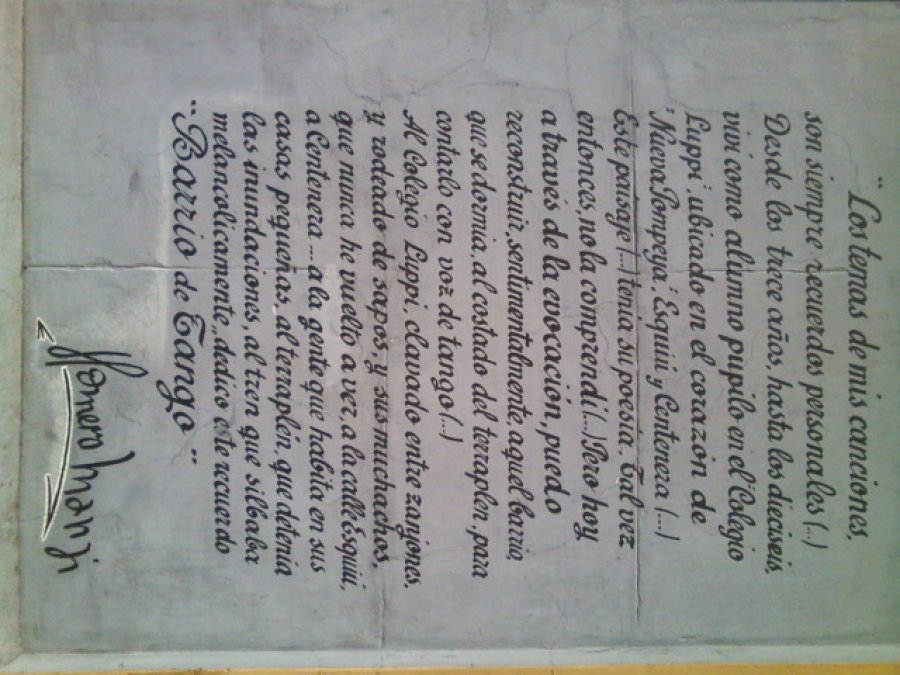 "Los temas de mis canciones,
son siempre recuerdos personales (...)
Desde los trece años, hasta los dieciseis,
viví como alumno pupilo en el "Colegio
Luppi", ubicado en el corazón de
"Nueva Pompeya", Esquiú y Centenera (...)
Este paisaje (...) tenía su poesía. Tal vez
entonces, no la comprendí (...) Pero hoy,
a través de la evocación, puedo
reconstruir, sentimentalmente, aquel barrio,
que se dormía, al costado del teraplen, para
contarlo con voz de tango (...)
Al Colegio Luppi, clavado entre zanjones,
y rodeado de sapos, y sus muchachos,
que nunca he vuelto a ver, a la calle Esquiú,
a Centenera ... a la gente que habita en sus
casas pequeñas, al terraplén, que detenía
las inundaciones, al tren que silbaba
melancolicamente, dedico este recuerdo
"Barrio de Tango"
Homero Manzi